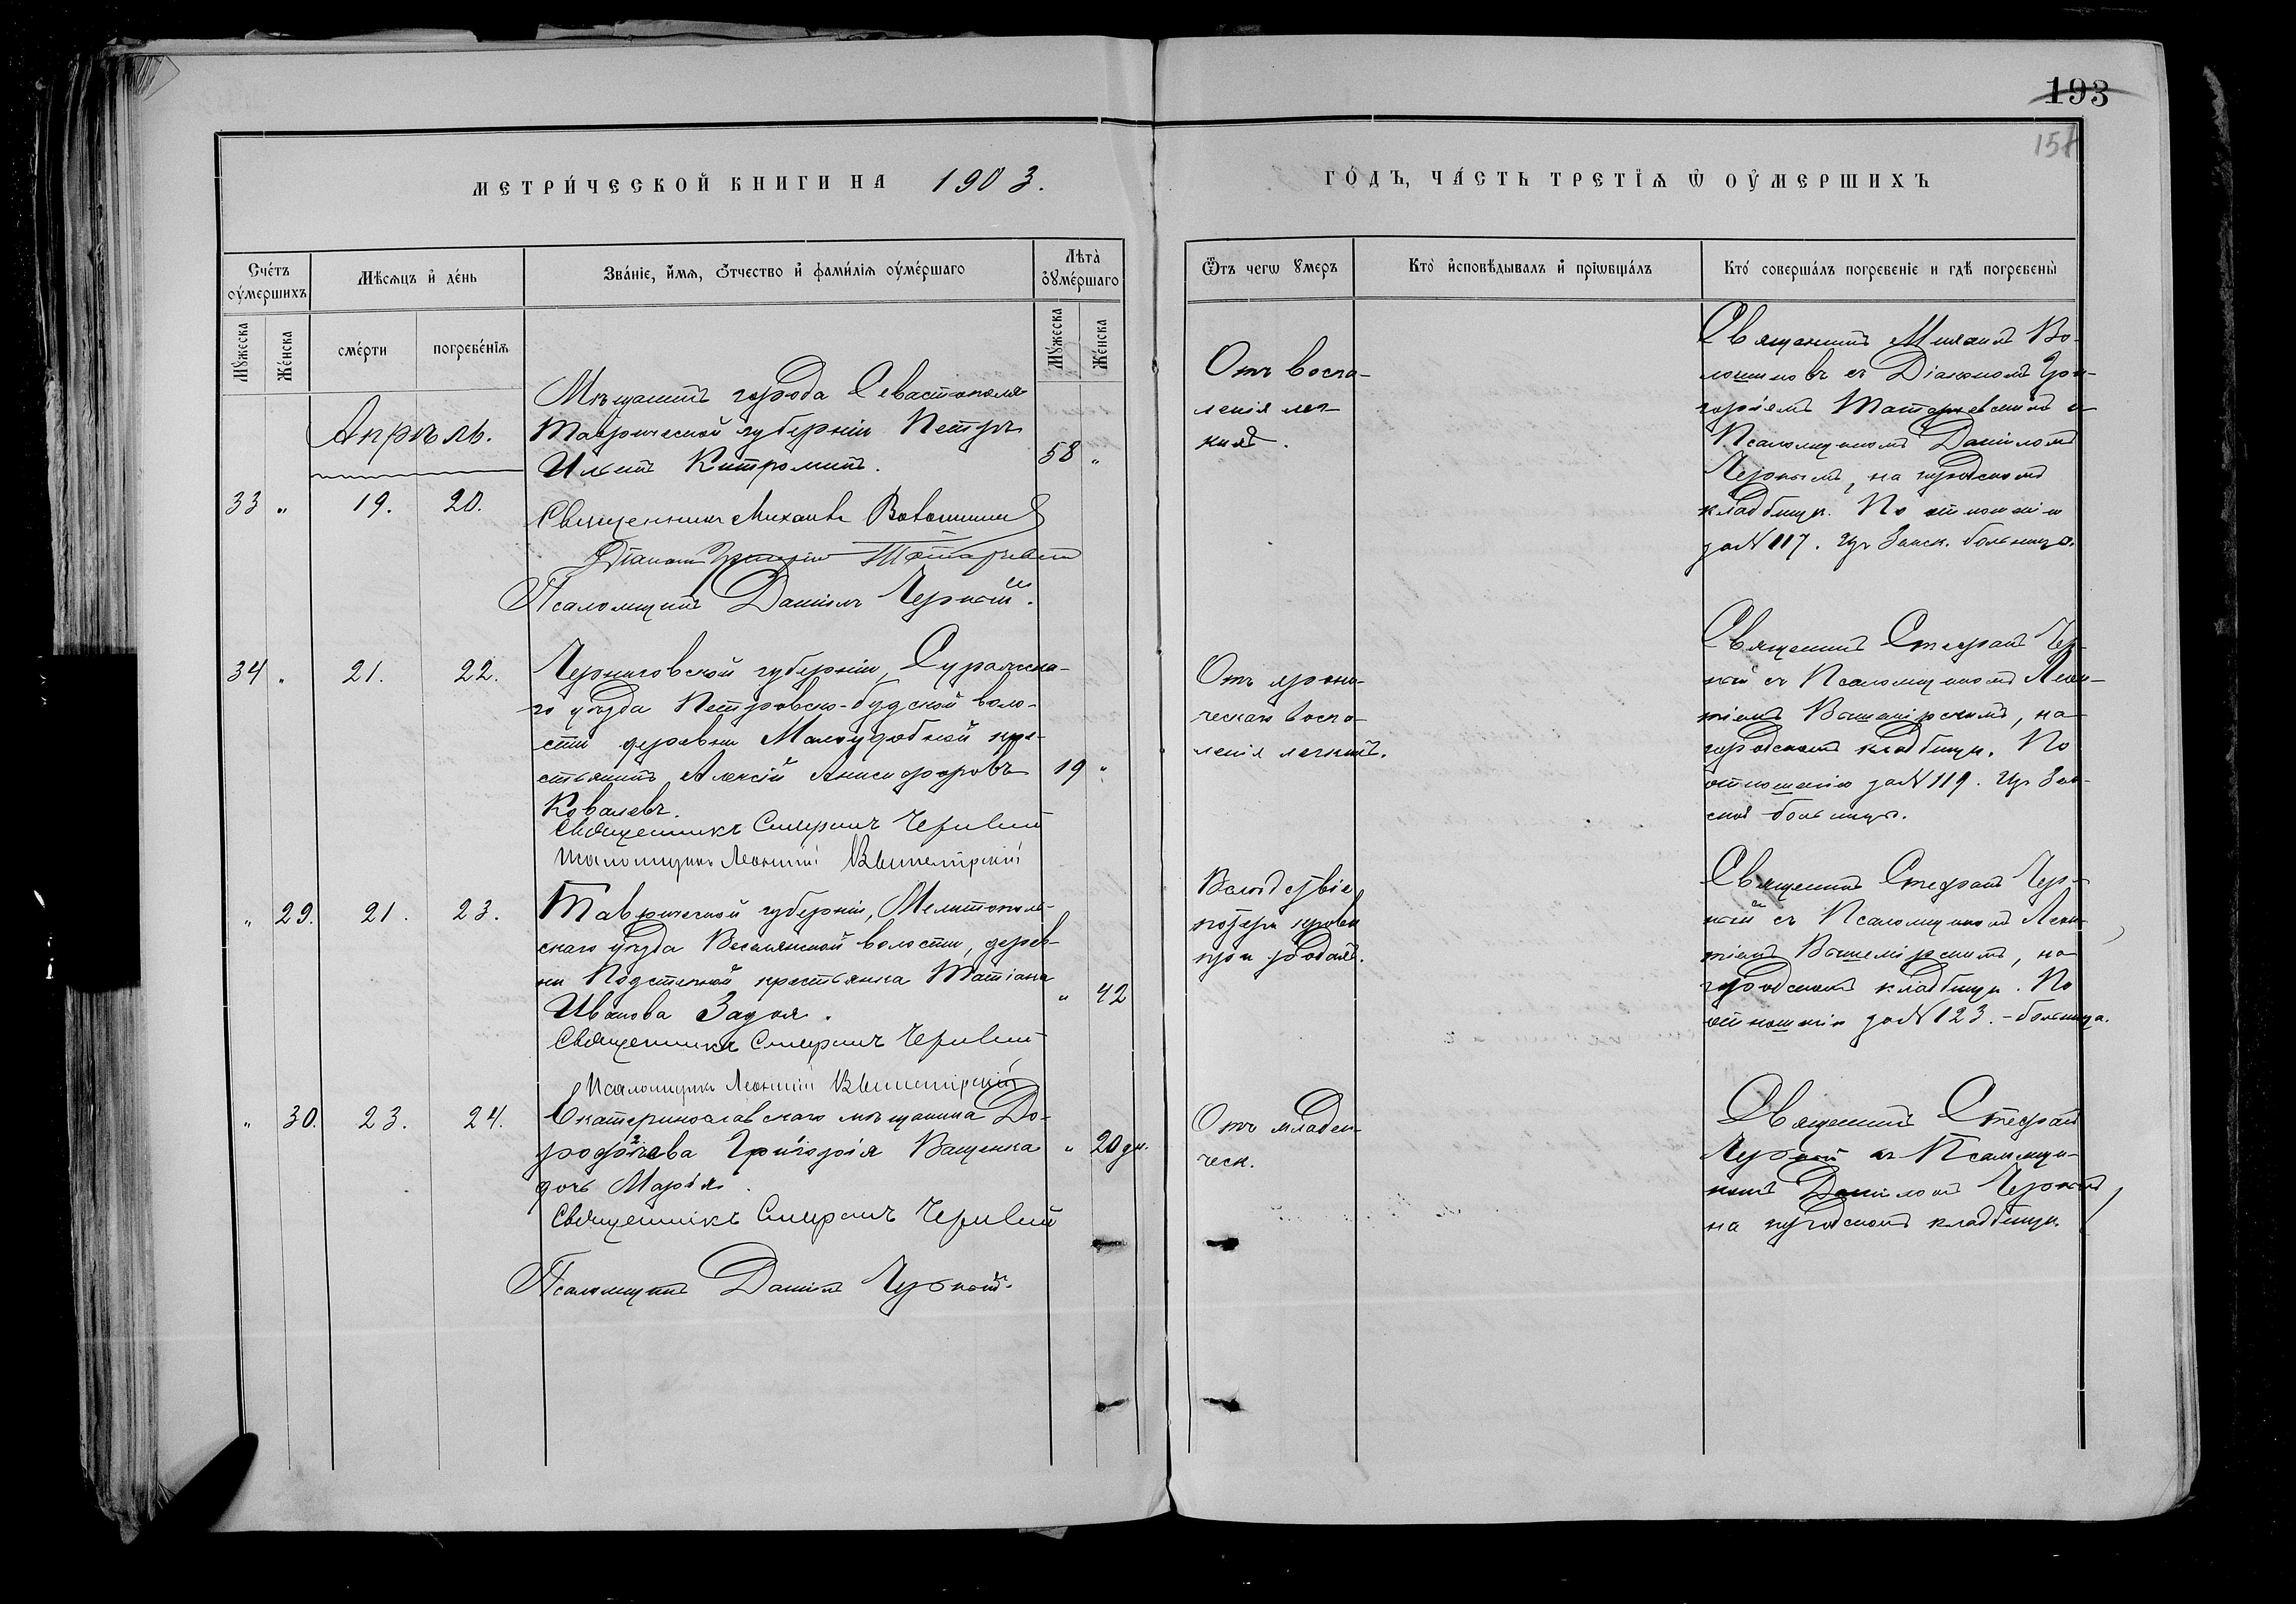 193
158
МЕТРИ́ЧЕСКОЙ КНИГИ НА 1903.
ГО́ДЪ, ЧА́СТЬ ТРЕТІѦ Ѡ ОУ҆МЕРШИХЪ
Сче́тъ оу҆́мершихъ
Мѣсяцъ и҆ де́нь
Зва́ніе, и҆́мя, ѻ҆́тчество и҆ фами́лія оу҆ме́ршаго
Лѣта̀ оу҆ме́ршаго
Мꙋ́жеска
Же́нска
сме́рти
погребе́нія
Мꙋ́жеска
Же́нска
Ѿ чегѡ ᲂумеръ
Кто̀ и҆сповѣ́дывалъ и҆ прїѡбща́лъ
Кто́ соверша́лъ погребеніе и гдѣ̀ погребены̀
Апрѣль.
33 " 19. 20.
Мѣщанинъ города Севастополя
Таврической губерніи Петръ
Ильинъ Китроминъ.
58 "
Священникъ Михаилъ Волошинов
Діаконъ Григорій Татаревскій
Псаломщикъ Даніилъ Черный.
Отъ воспа-
ленія лег-
кихъ.
Священникъ Михаилъ Во-
лошиновъ съ Діакономъ Гри-
горіемъ Татаревскимъ и
Псаломщикомъ Даніиломъ
Чернымъ, на городскомъ
кладбищѣ. По отношенію
за № 117. Изъ Земск. больницы.
34 " 21. 22.
Черниговской губерніи, Суражска-
го уѣзда Петровско-будской воло-
сти деревни Малоудобной кре-
стьянинъ Алексій Анисифоровъ
Ковалевъ.
19 "
Священникъ Стефанъ Черный
Псаломщикъ Леонтій Вышемірскій
Отъ хрони-
ческаго воспа-
ленія легкихъ.
Священникъ Стефанъ Чер-
ный съ Псаломщикомъ Леон-
тіемъ Вышемірскимъ, на
городскомъ кладбищѣ. По
отношенію за № 119. Изъ Зем-
ской больницы.
" 29. 21. 23.
Таврической губерніи, Мелитополь-
скаго уѣзда Веселянской волости, дерев-
ни Подстепной крестьянка Татіана
Иванова Задоя.
" 42
Священникъ Стефанъ Черный
Псаломщикъ Леонтій Вышемірскій
Вслѣдствіе
потери крови
при родахъ.
Священникъ Стефанъ Чер-
ный съ Псаломщикомъ Леон-
тіемъ Вышемірскимъ, на
городскомъ кладбищѣ. По
отношенію за № 123. - больница.
" 30. 23. 24.
Екатеринославскаго мѣщанина До-
рофеева Григорія Ващенка
дочь Марія.
" 20 дн.
Священникъ Стефанъ Черный
Псаломщикъ Даніилъ Черный.
Отъ младен-
ческ.
Священникъ Стефанъ
Черный съ Псаломщи-
комъ Даніиломъ Чернымъ,
на городскомъ кладбищѣ.